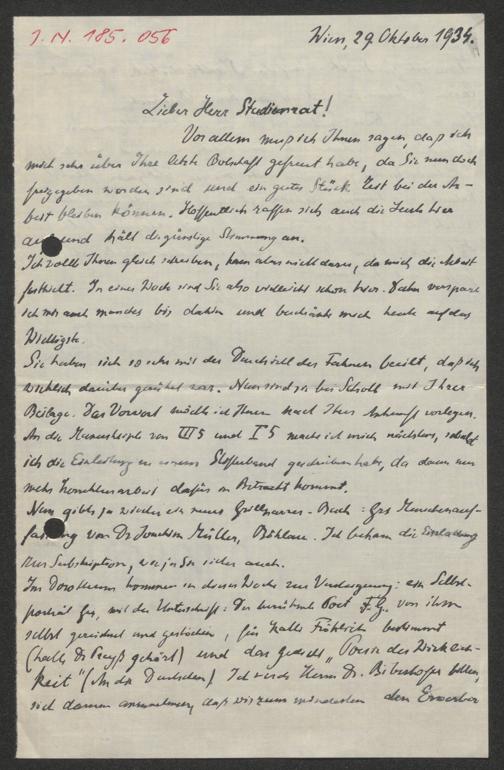 I. N. 185.056
Wien, 29. Oktober 1934.
Lieber Herr Studienrat!
Vor allem muß ich Ihnen sagen, daß ich
mich sehr über Ihre letzte Botschaft gefreut habe, da Sie nun doch
freigegeben worden sind und ein gutes Stück Zeit bei der Ar-
beit bleiben können. Hoffentlich raffen sich auch die Leute hier
auf und hält die günstige Stimmung an.
Ich wollte Ihnen gleich schreiben, kam aber nicht dazu, da mich die Arbeit
In einer Woche sind Sie also vielleicht schon hier. Dann verspare
ich mir auch manches bis dahin und beschränke mich heute auf das
Wichtigste.
Sie haben sich so sehr mit der Durchsicht der Fahnen beeilt, daß ich
wirklich darüber gerührt war. Nun sind sie bei Scholl mit Ihrer
Beilage. Das Vorwort möchte ich Ihnen nach Ihrer Ankunft vorlegen.
An die Manuskripte von III 5 und I 5 mache ich mich nächstens, sobald
ich die Einleitung zu geschrieben habe, da dann nur
mehr Korrekturarbeit dafür in Betracht kommt.
Nun gibts ja wieder ein neues Grillparzer-Buch: Grs Menschenauf-
fassung von Dr Joachim Müller, Böhlau. Ich bekam die Einladung
zur Subskription, wie ja Sie sicher auch.
Im Dorotheum kommen in dieser Woche zur Versteigerung: ein Selbst-
porträt Grs, mit der Unterschrift: Der berühmte Poet F. G. von ihm
selbst gezeichnet und gestochen, für Kathi Fröhlich bestimmt
(hatte Dr Preyß gehört) und das Gedicht „Poesie der Wirklich-
keit" (An die Deutschen) Ich werde Herrn Dr. Biberhofer bitten,
sich darum anzunehmen, daß wir zum mindesten den Erwerber